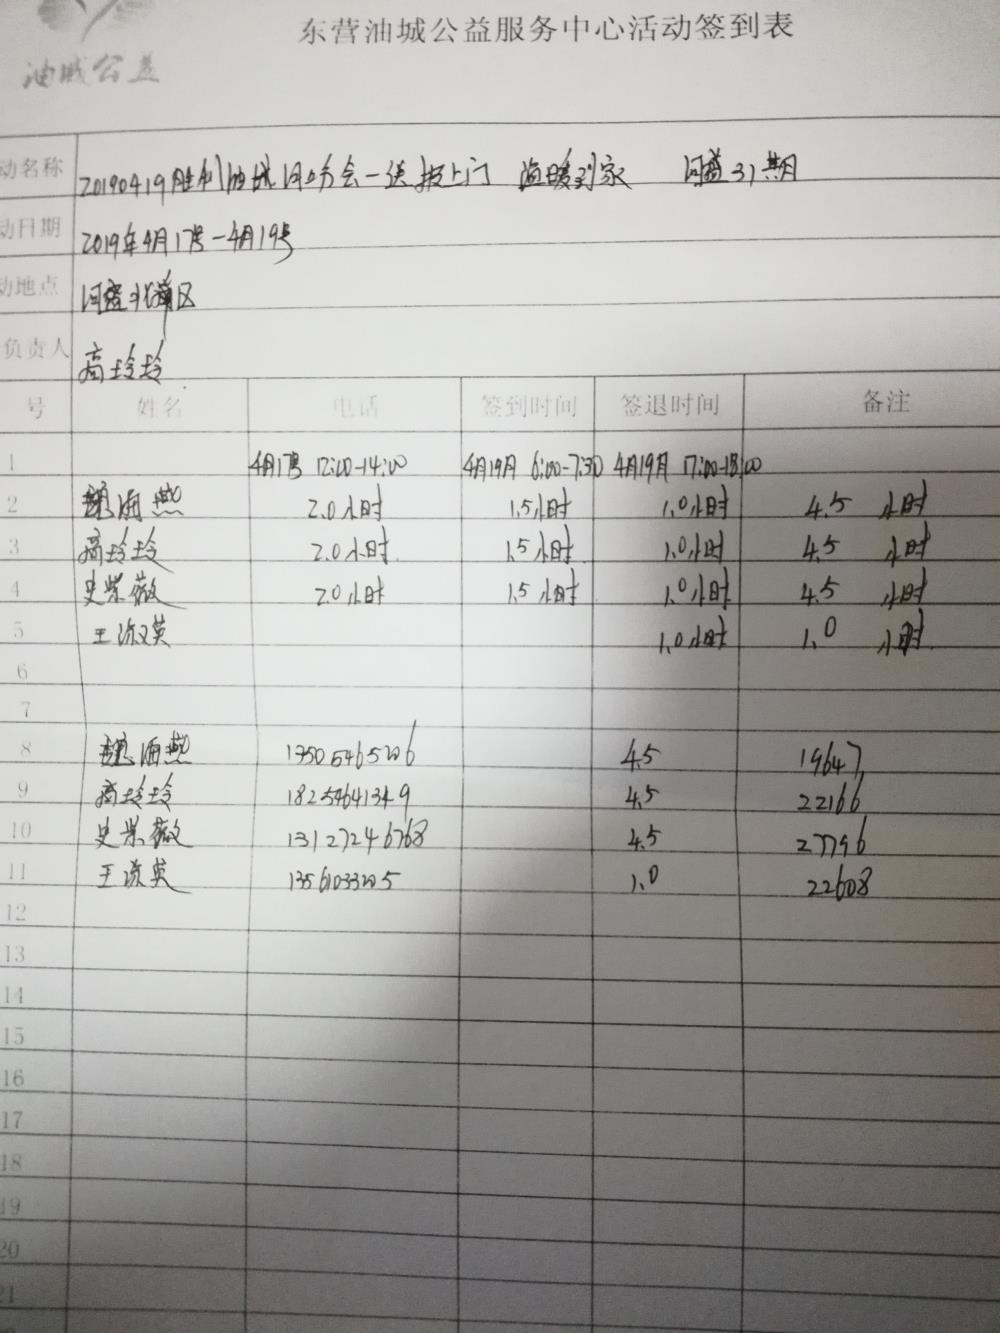 东营油城公益服务中心活动签到表
油城公益
动名称 20190419胜利油城 分会一送报上门 温暖到家 31期
动日期 2019年4月17号-4月19号
动地点 区
负责人 高玲玲
号 姓名 电话 签到时间 签退时间 备注
1 4月17号 12:00-14:00 4月19月 6:00-7:30 4月19月 17:00-18:00
2 海燕 2.0小时 1.5小时 1.0小时 4.5 小时
3 高玲玲 2.0小时 1.5小时 1.0小时 4.5 小时
4 史紫薇 2.0小时 1.5小时 1.0小时 4.5 小时
5 王 英 1.0小时 1.0 小时
6
7
8 海燕 4.5 19647
9 高玲玲 18254641349 4.5 22166
10 史紫薇 13127246768 4.5 27796
11 王 英 1.0 22608
12
13
14
15
16
17
18
19
20
21